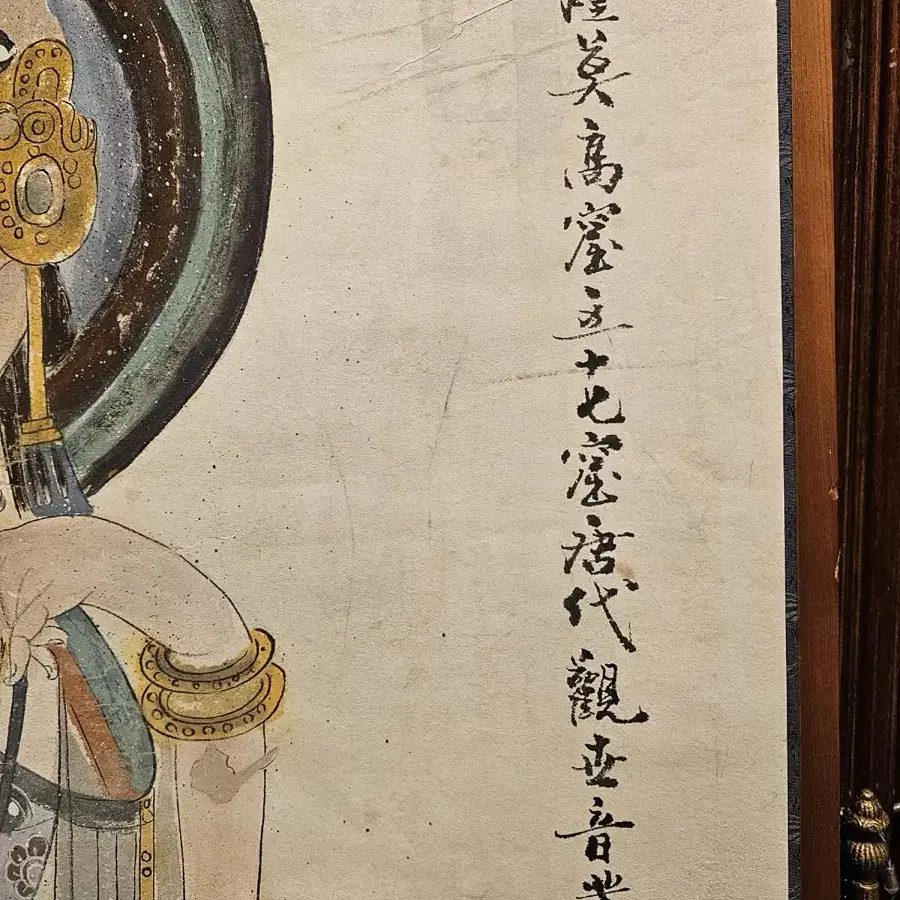 莫高窟五十七窟唐代觀世音